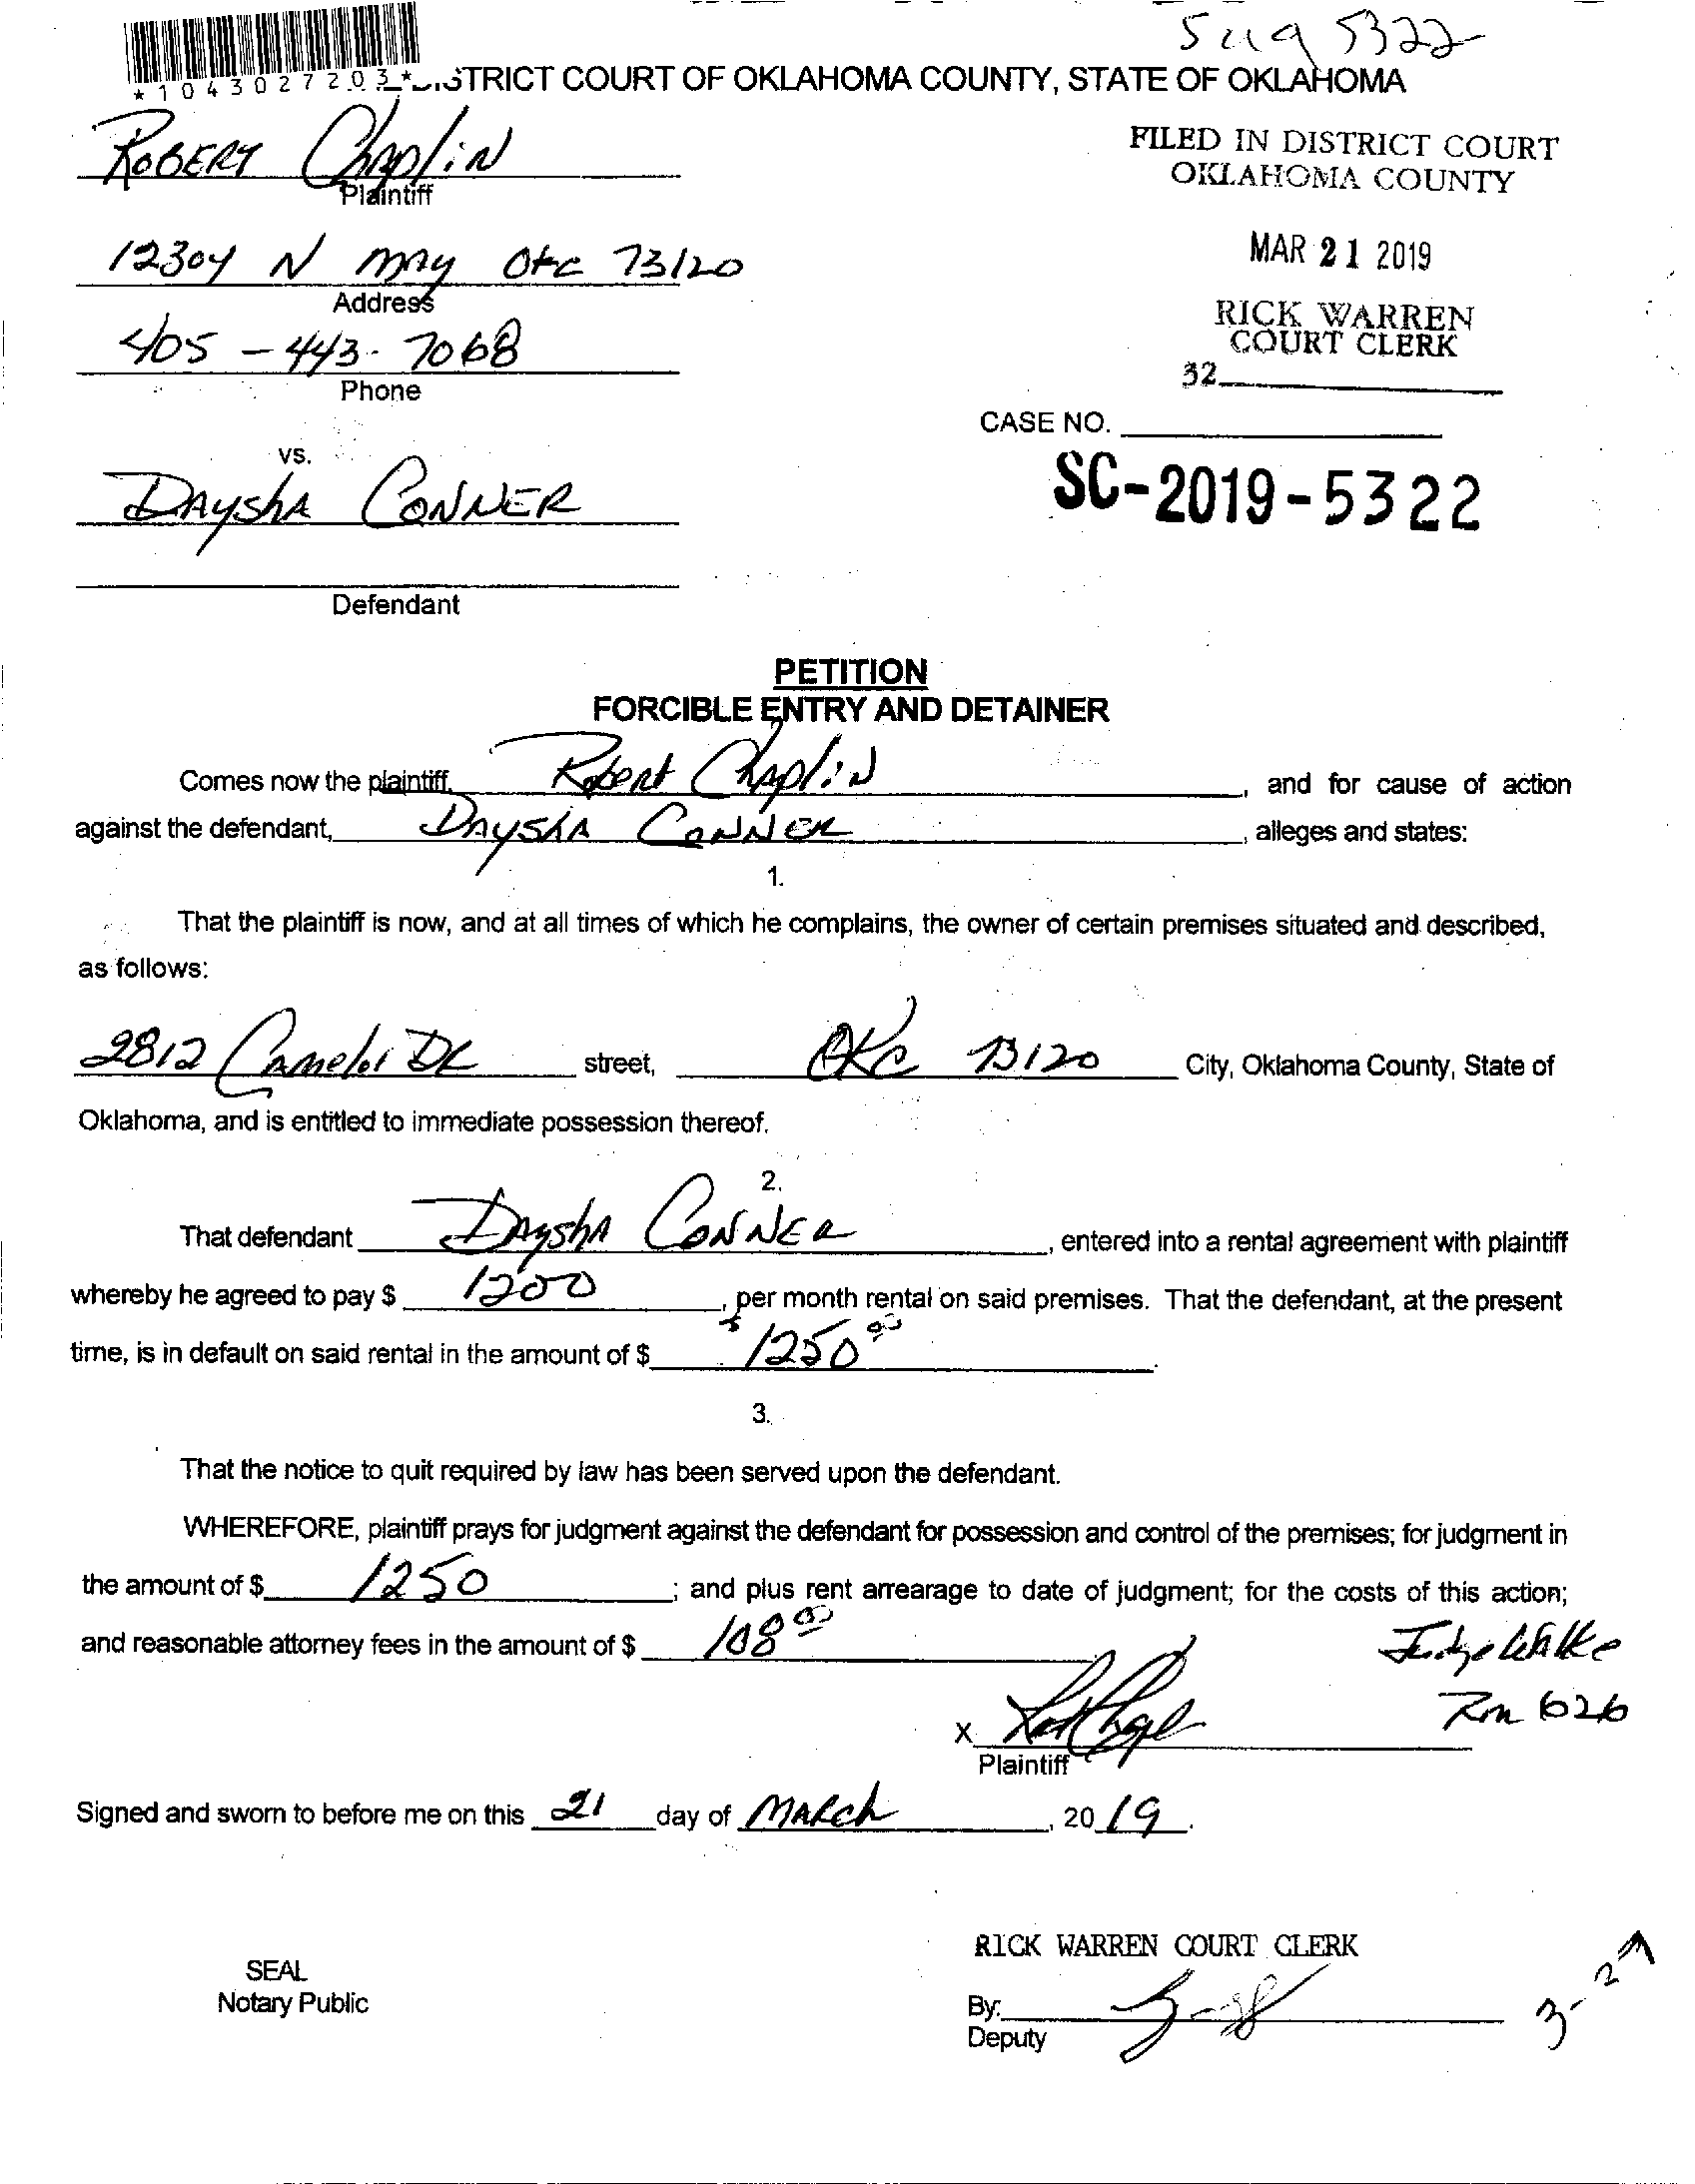 5 ug 5322
*1043027203*
STRICT COURT OF OKLAHOMA COUNTY, STATE OF OKLAHOMA
ROBERT Chaplin
Plaintiff
FILED IN DISTRICT COURT
OKLAHOMA COUNTY
12304 N May OKC 73120
Address
MAR 21 2019
405-443-7068
Phone
RICK WARREN
COURT CLERK
32
CASE NO.
vs.
SC-2019-5322
DAYSHA CONNER
Defendant
PETITION
FORCIBLE ENTRY AND DETAINER
Comes now the plaintiff, Robert Chaplin, and for cause of action
against the defendant, DAYSHA CONNER, alleges and states:
1.
That the plaintiff is now, and at all times of which he complains, the owner of certain premises situated and described,
as follows:
2812 Camelot DR street, OKC 73120 City, Oklahoma County, State of
Oklahoma, and is entitled to immediate possession thereof.
2.
That defendant DAYSHA CONNER, entered into a rental agreement with plaintiff
whereby he agreed to pay $ 1200, per month rental on said premises. That the defendant, at the present
time, is in default on said rental in the amount of $ $1250 00.
3.
That the notice to quit required by law has been served upon the defendant.
WHEREFORE, plaintiff prays for judgment against the defendant for possession and control of the premises; for judgment in
the amount of $ 1250; and plus rent arrearage to date of judgment; for the costs of this action;
and reasonable attorney fees in the amount of $ 108 00
Judge Walke
Rm 626
X
Plaintiff
Signed and sworn to before me on this 21 day of MARCH, 20 19.
RICK WARREN COURT CLERK
SEAL
Notary Public
By:
Deputy
3-27